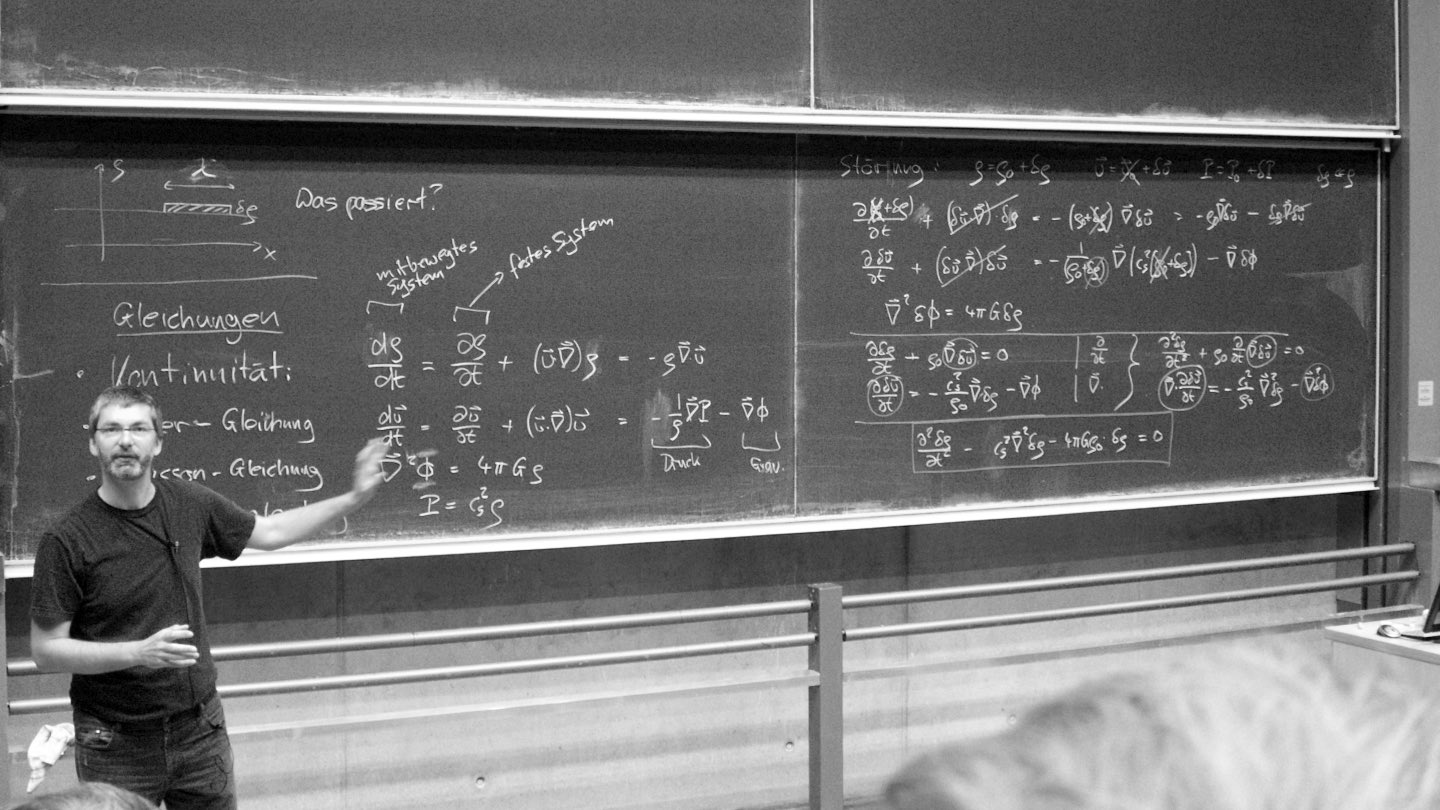 ρ
λ
δρ
x
Was passiert?
mitbewegtes System
festes System
Gleichungen
• Kontinuität: dρ/dt = ∂ρ/∂t + (u⃗ ∇⃗)ρ = - ρ ∇⃗ u⃗
- Gleichung du⃗/dt = ∂u⃗/∂t + (u⃗·∇⃗)u⃗ = - 1/ρ ∇⃗P - ∇⃗ϕ
Druck Grav.
- Gleichung ∇⃗²ϕ = 4πGρ
P = c_s² ρ
Störung: ρ = ρ₀ + δρ u⃗ = u⃗₀ + δu⃗ P = P₀ + δP
∂(ρ₀+δρ)/∂t + (δu⃗ ∇⃗) δρ = - (ρ₀+δρ) ∇⃗ δu⃗ = - ρ₀∇⃗δu⃗ - δρ∇⃗δu⃗
∂δu⃗/∂t + (δu⃗ ∇⃗)δu⃗ = - 1/(ρ₀+δρ) ∇⃗(c_s²(ρ₀+δρ)) - ∇⃗δϕ
∇⃗²δϕ = 4πGδρ
∂δρ/∂t + ρ₀ ∇⃗δu⃗ = 0 | ∂/∂t } ∂²δρ/∂t² + ρ₀ ∂/∂t ∇⃗δu⃗ = 0
∂δu⃗/∂t = - c_s²/ρ₀ ∇⃗δρ - ∇⃗ϕ | ∇⃗· } ∇⃗·∂δu⃗/∂t = - c_s²/ρ₀ ∇⃗²δρ - ∇⃗²δϕ
∂²δρ/∂t² - c_s²∇⃗²δρ - 4πGρ₀·δρ = 0